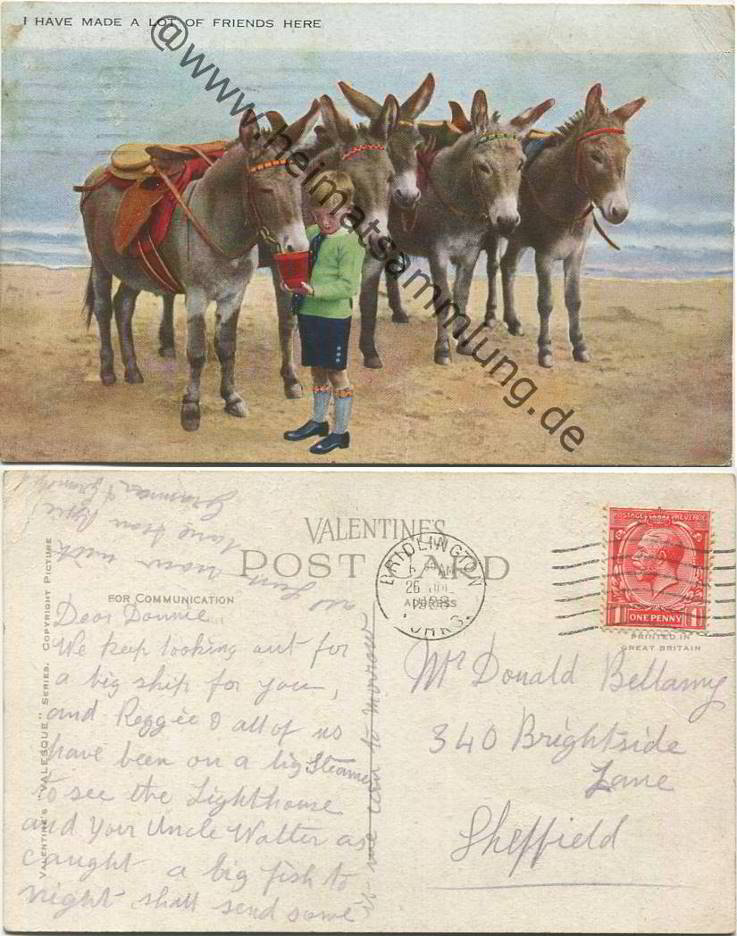 I HAVE MADE A LOT OF FRIENDS HERE
@www.heimatsammlung.de
VALENTINE'S
POST CARD
FOR COMMUNICATION
ADDRESS
VALENTINE'S "VALESQUE" SERIES. COPYRIGHT PICTURE
BRIDLINGTON
YORKS.
POSTAGE REVENUE
ONE PENNY
PRINTED IN
GREAT BRITAIN
Dear Donnie
We keep looking out for
a big ship for you,
and Reggie & all of us
have been on a big Steamer
to see the Lighthouse
and Your Uncle Walter as
caught a big fish to
night shall send some
to morrow
love from
Mr Donald Bellamy
340 Brightside
Lane
Sheffield